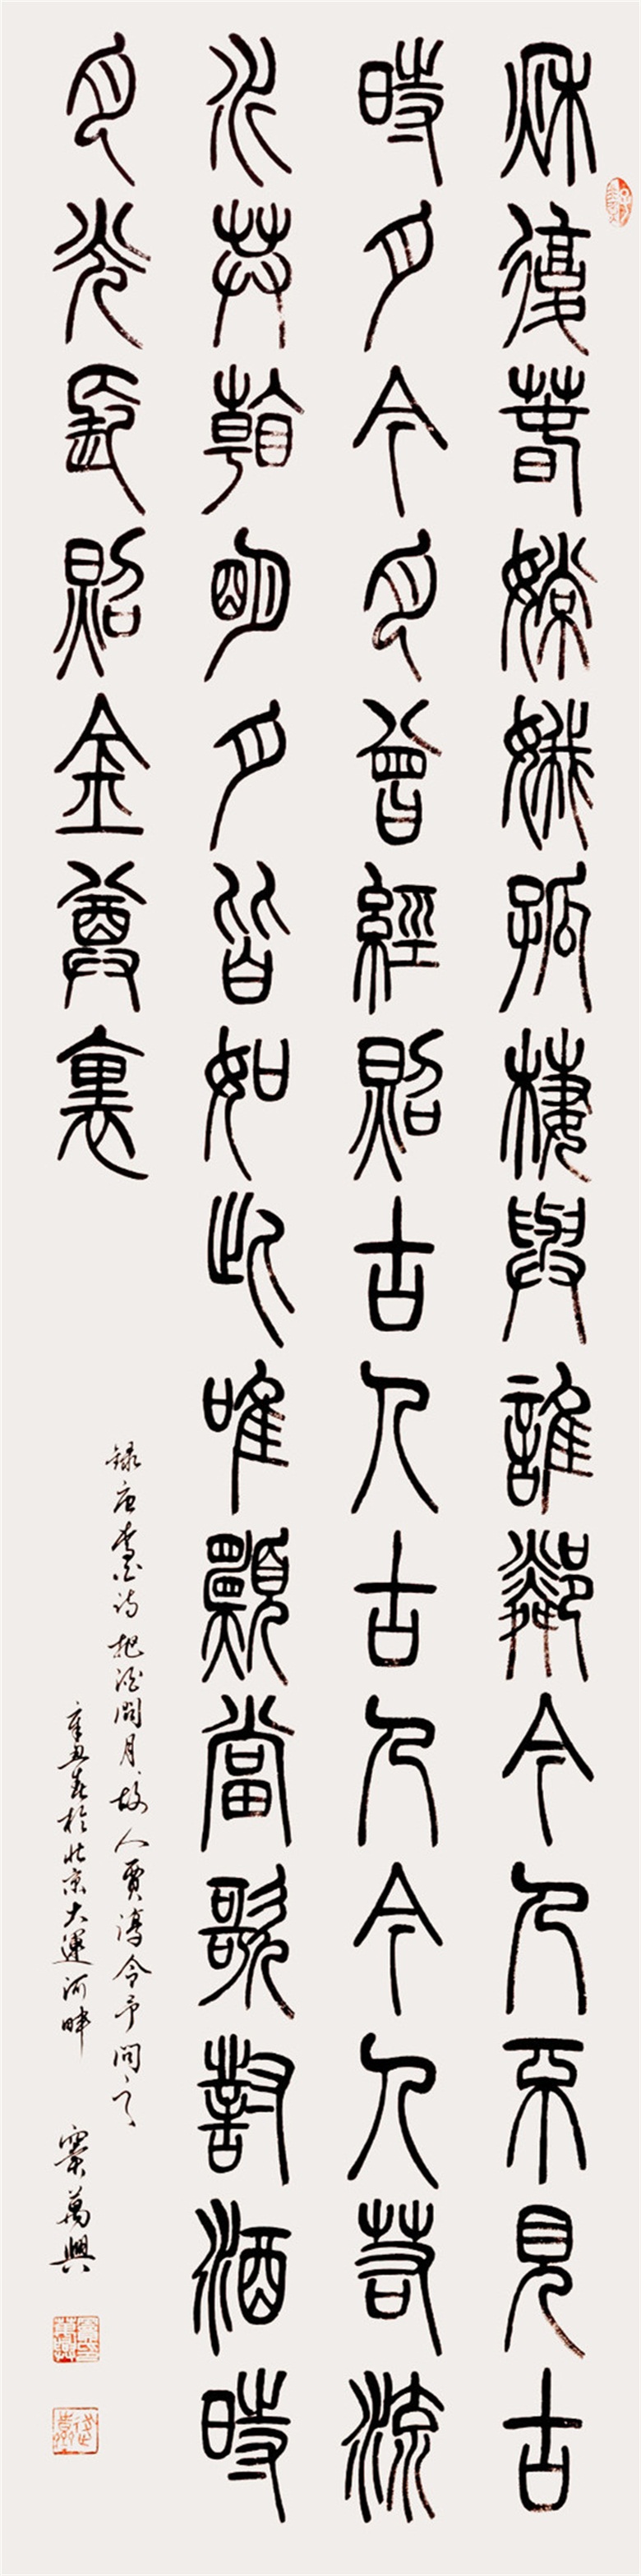 秋復春嫦娥孤棲與誰鄰今人不見古
時月今月曾經照古人古人今人若流
水共看明月皆如此唯願當歌對酒時
月光長照金尊裏
録唐李白詩把酒問月故人賈淳令予問之
辛丑春於北京大運河畔 竇萬興